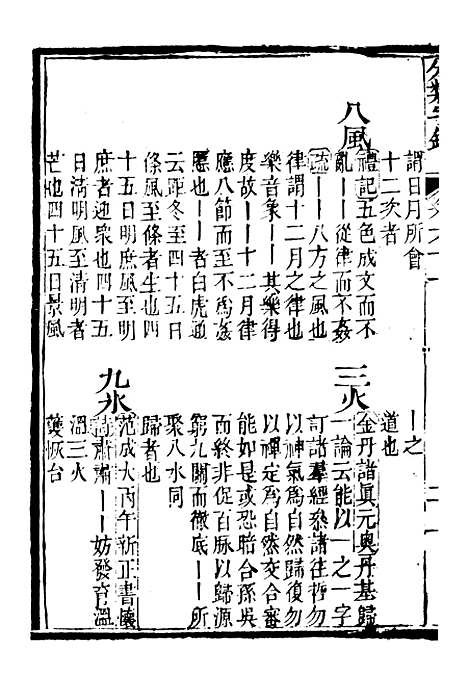 謂日月所會
十二次者
八風
禮記五色成文而不
亂丨丨從律而不姦
疏丨丨八方之風也
律謂十二月之律也
樂音象丨丨其樂得
度故丨丨十二月律
應八節而至不為姦
慝也丨丨者白虎通
云距冬至四十五日
條風至條者生也四
十五日明庶風至明
庶者迎衆也四十五
日清明風至清明者
芒也四十五日景風
丨之
道也
三火
金丹諸眞元奥丹基歸
一論云能以一之一字
訂諸羣經叅諸往哲勿
以神氣為自然歸復勿
以禪定為自然交合審
能如是或恐暗合孫吳
而終非促百脉以歸源
窮九關而徹底丨丨所
聚八水同
歸者也
九水
范成大丙午新正書懷
詩肅肅丨丨妨發育溫
溫三火
孌灰台